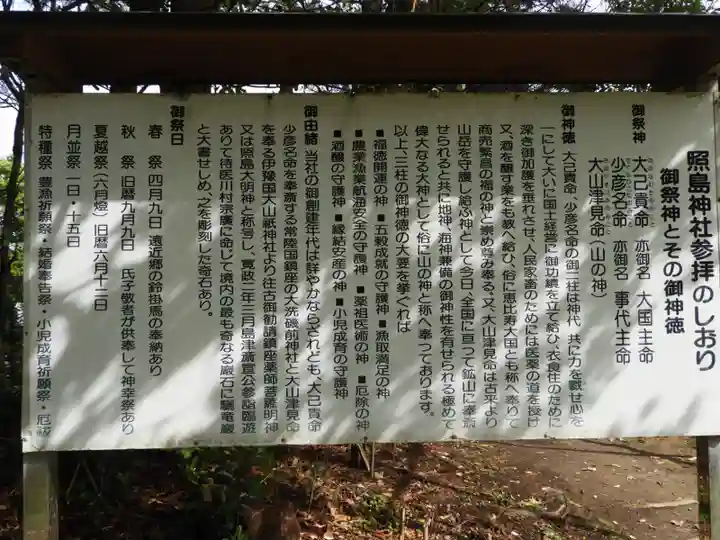 照島神社参拝のしおり
御祭神とその御神徳
御祭神 大己貴命 亦御名 大国主命
少彦名命 亦御名 事代主命
大山津見命（山の神）
御神徳 大己貴命 少彦名命の御二柱は神代、共に力を戮せ心を
一にして大いに国土経営に御功績を立て給ひ、衣食住のために
深き御加護を垂れさせ、人民家畜のためには医薬の道を授け
又、酒を醸す業をも教へ給ひ、俗に恵比寿大国とも称へ奉りて
商売繁昌の福の神と崇め尊み奉る。又、大山津見命は古平より
山岳を守護し給ふ神として今日、全国に亘って鉱山に奉斎
せられると共に地神、海神兼備の御神性を有せられる極めて
偉大なる大神として俗に山の神と称へ奉っております。
以上、三柱の御神徳の大要を挙ぐれば
■福徳開運の神 ■五穀成就の守護神 ■漁取満足の神
■農業漁業航海安全の守護神 ■薬祖医術の神 ■厄除の神
■酒醸の守護神 ■縁結安産の神 ■小児成育の守護神
御由緒 当社の御創建年代は詳やかならざれども、大己貴命
少彦名命を奉斎する常陸国鎮座の大洗磯前神社と大山津見命
を奉る伊豫国大山祇神社より往古御勧請鎮座薬師菩薩明神
又は照島大明神と称号し、寛政二年三月島津斉宣公参詣臨遊
ありて侍医川村宗廣に命じて境内の最も奇なる巌石に驪竜巌
と大書せしめ、之を彫刻した奇石あり。
御祭日
春 祭 四月九日 遠近郷の鈴掛馬の奉納あり
秋 祭 旧暦九月九日 氏子敬者が供奉して神幸祭あり
夏越祭（六月燈）旧暦六月十二日
月並祭 一日・十五日
特種祭 豊漁祈願祭・結婚奉告祭・小児成育祈願祭・厄祓